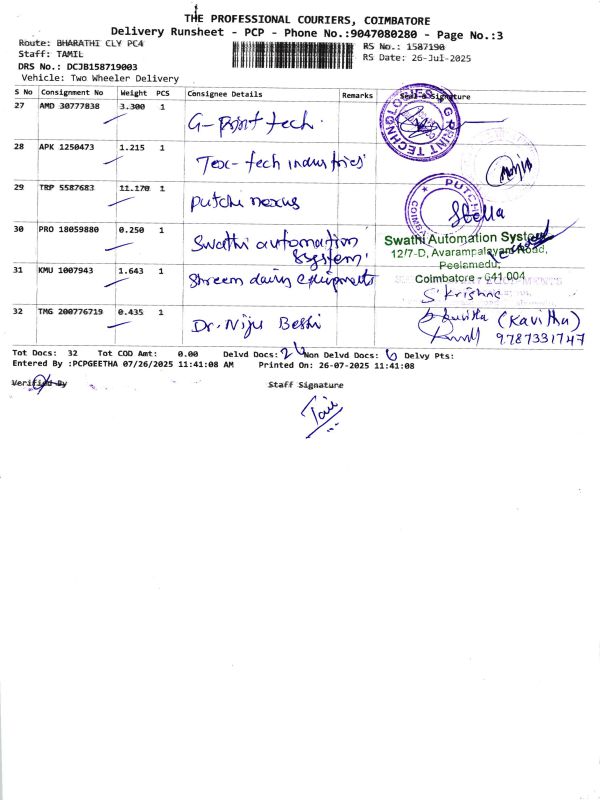 THE PROFESSIONAL COURIERS, COIMBATORE
Delivery Runsheet - PCP - Phone No.:9047080280 - Page No.:3
Route: BHARATHI CLY PC4
RS No.: 1587190
Staff: TAMIL
RS Date: 26-Jul-2025
DRS No.: DCJB158719003
Vehicle: Two Wheeler Delivery
S No Consignment No Weight PCS Consignee Details Remarks Seal & Signature
27 AMD 30777838 3.300 1 G-Print tech.
G PRINT TECHNOLOGIES
28 APK 1250473 1.215 1 Tex-tech industries
29 TRP 5587683 11.170 1 Putchi nexus
PUTCHI
Stella
30 PRO 18059880 0.250 1 Swathi automation
System.
Swathi Automation System
12/7-D, Avarampalayam Road,
Peelamedu,
Coimbatore - 641 004
31 KMU 1007943 1.643 1 Shreem dairy equipments
S'Krishna
32 TMG 200776719 0.435 1 Dr. Niju Beshi
(Kavitha)
9787331747
Tot Docs: 32 Tot COD Amt: 0.00 Delvd Docs: 26 Non Delvd Docs: 6 Delvy Pts:
Entered By :PCPGEETHA 07/26/2025 11:41:08 AM Printed On: 26-07-2025 11:41:08
Verified By Staff Signature